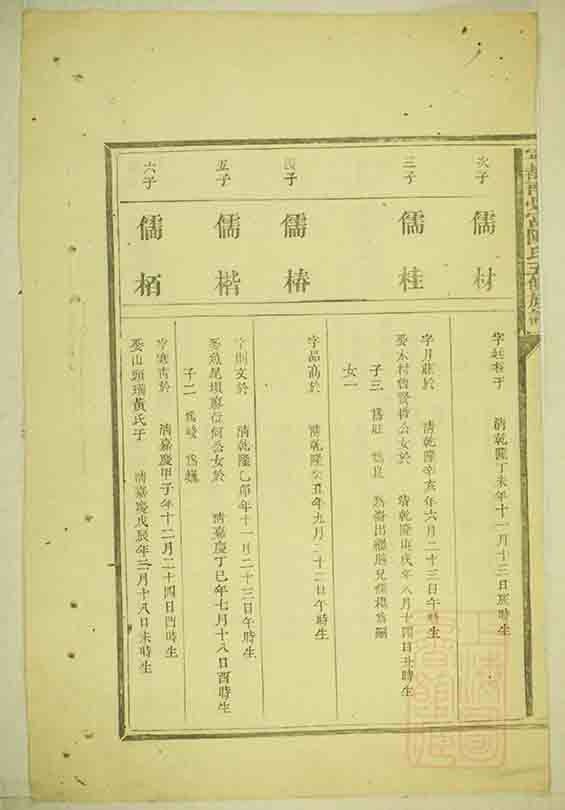 次子
儒材
字廷 于
清乾隆丁未年十一月十三日辰時生
三子
儒桂
字月莊於
清乾隆辛亥年六月二十三日午時生
娶木村曾賢 公女於
清乾隆庚戌年八月十四日丑時生
子三
女一
四子
儒椿
字品高於
清乾隆 丑年九月二十二日午時生
五子
儒楷
字則文於
清乾隆乙卯年十一月二十三日午時生
娶魚尾坝 何公女於
清嘉慶丁巳年七月十八日酉時生
子二
六子
儒栢
字 青於
清嘉慶甲子年十二月二十四日酉時生
娶山頭 黃氏于
清嘉慶戊辰年二月十八日未時生